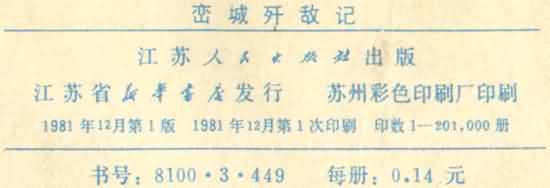 峦城歼敌记
江苏人民出版社出版
江苏省新华书店发行 苏州彩色印刷厂印刷
1981年12月第1版 1981年12月第1次印刷 印数1—201,000册
书号：8100·3·449 每册：0.14元